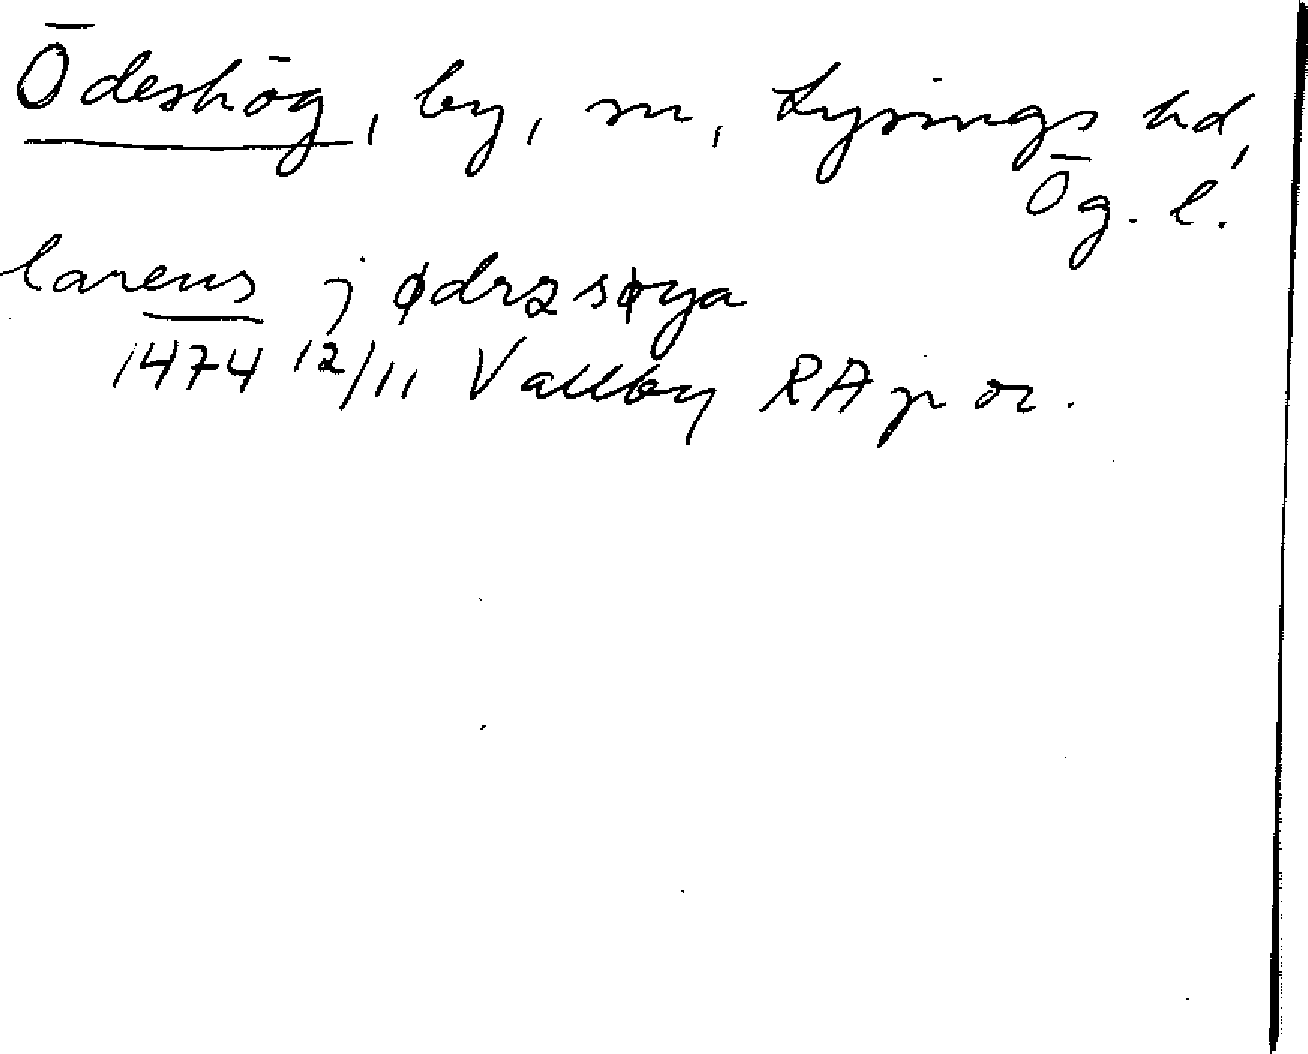 Ödeshög, by, sn, Lysings hd,
Ög. l.
larens j ødrzsøya
1474 12/11 Vallby RA p or.